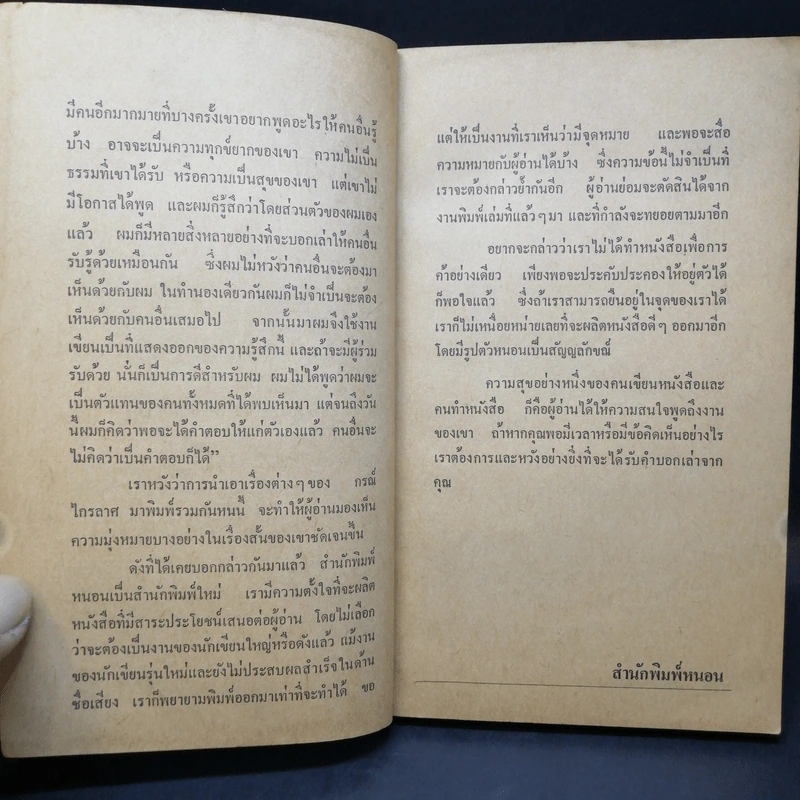 มีคนอีกมากมายที่บางครั้งเขาอยากพูดอะไรให้คนอื่นรู้
บ้าง อาจจะเป็นความทุกข์ยากของเขา ความไม่เป็น
ธรรมที่เขาได้รับ หรือความเป็นสุขของเขา แต่เขาไม่
มีโอกาสได้พูด และผมก็รู้สึกว่าโดยส่วนตัวของผมเอง
แล้ว ผมก็มีหลายสิ่งหลายอย่างที่จะบอกเล่าให้คนอื่น
รับรู้ด้วยเหมือนกัน ซึ่งผมไม่หวังว่าคนอื่นจะต้องมา
เห็นด้วยกับผม ในทำนองเดียวกันผมก็ไม่จำเป็นจะต้อง
เห็นด้วยกับคนอื่นเสมอไป จากนั้นมาผมจึงใช้งาน
เขียนเป็นที่แสดงออกของความรู้สึกนี้ และถ้าจะมีผู้ร่วม
รับด้วย นั่นก็เป็นการดีสำหรับผม ผมไม่ได้พูดว่าผมจะ
เป็นตัวแทนของคนทั้งหมดที่ได้พบเห็นมา แต่จนถึงวัน
นี้ผมก็คิดว่าพอจะได้คำตอบให้แก่ตัวเองแล้ว คนอื่นจะ
ไม่คิดว่าเป็นคำตอบก็ได้”
เราหวังว่าการนำเอาเรื่องต่างๆ ของ กรณ์
ไกรลาศ มาพิมพ์รวมกันหนนี้ จะทำให้ผู้อ่านมองเห็น
ความมุ่งหมายบางอย่างในเรื่องสั้นของเขาชัดเจนขึ้น
ดังที่ได้เคยบอกกล่าวกันมาแล้ว สำนักพิมพ์
หนอนเป็นสำนักพิมพ์ใหม่ เรามีความตั้งใจที่จะผลิต
หนังสือที่มีสาระประโยชน์เสนอต่อผู้อ่าน โดยไม่เลือก
ว่าจะต้องเป็นงานของนักเขียนใหญ่หรือดังแล้ว แม้งาน
ของนักเขียนรุ่นใหม่และยังไม่ประสบผลสำเร็จในด้าน
ชื่อเสียง เราก็พยายามพิมพ์ออกมาเท่าที่จะทำได้ ขอ
แต่ให้เป็นงานที่เราเห็นว่ามีจุดหมาย และพอจะสื่อ
ความหมายกับผู้อ่านได้บ้าง ซึ่งความข้อนี้ไม่จำเป็นที่
เราจะต้องกล่าวย้ำกันอีก ผู้อ่านย่อมจะตัดสินได้จาก
งานพิมพ์เล่มที่แล้วๆ มา และที่กำลังจะทยอยตามมาอีก
อยากจะกล่าวว่าเราไม่ได้ทำหนังสือเพื่อการ
ค้าอย่างเดียว เพียงพอจะประคับประคองให้อยู่ตัวได้
ก็พอใจแล้ว ซึ่งถ้าเราสามารถยืนอยู่ในจุดของเราได้
เราก็ไม่เหนื่อยหน่ายเลยที่จะผลิตหนังสือดีๆ ออกมาอีก
โดยมีรูปตัวหนอนเป็นสัญญลักขณ์
ความสุขอย่างหนึ่งของคนเขียนหนังสือและ
คนทำหนังสือ ก็คือผู้อ่านได้ให้ความสนใจพูดถึงงาน
ของเขา ถ้าหากคุณพอมีเวลาหรือมีข้อคิดเห็นอย่างไร
เราต้องการและหวังอย่างยิ่งที่จะได้รับคำบอกเล่าจาก
คุณ
สำนักพิมพ์หนอน